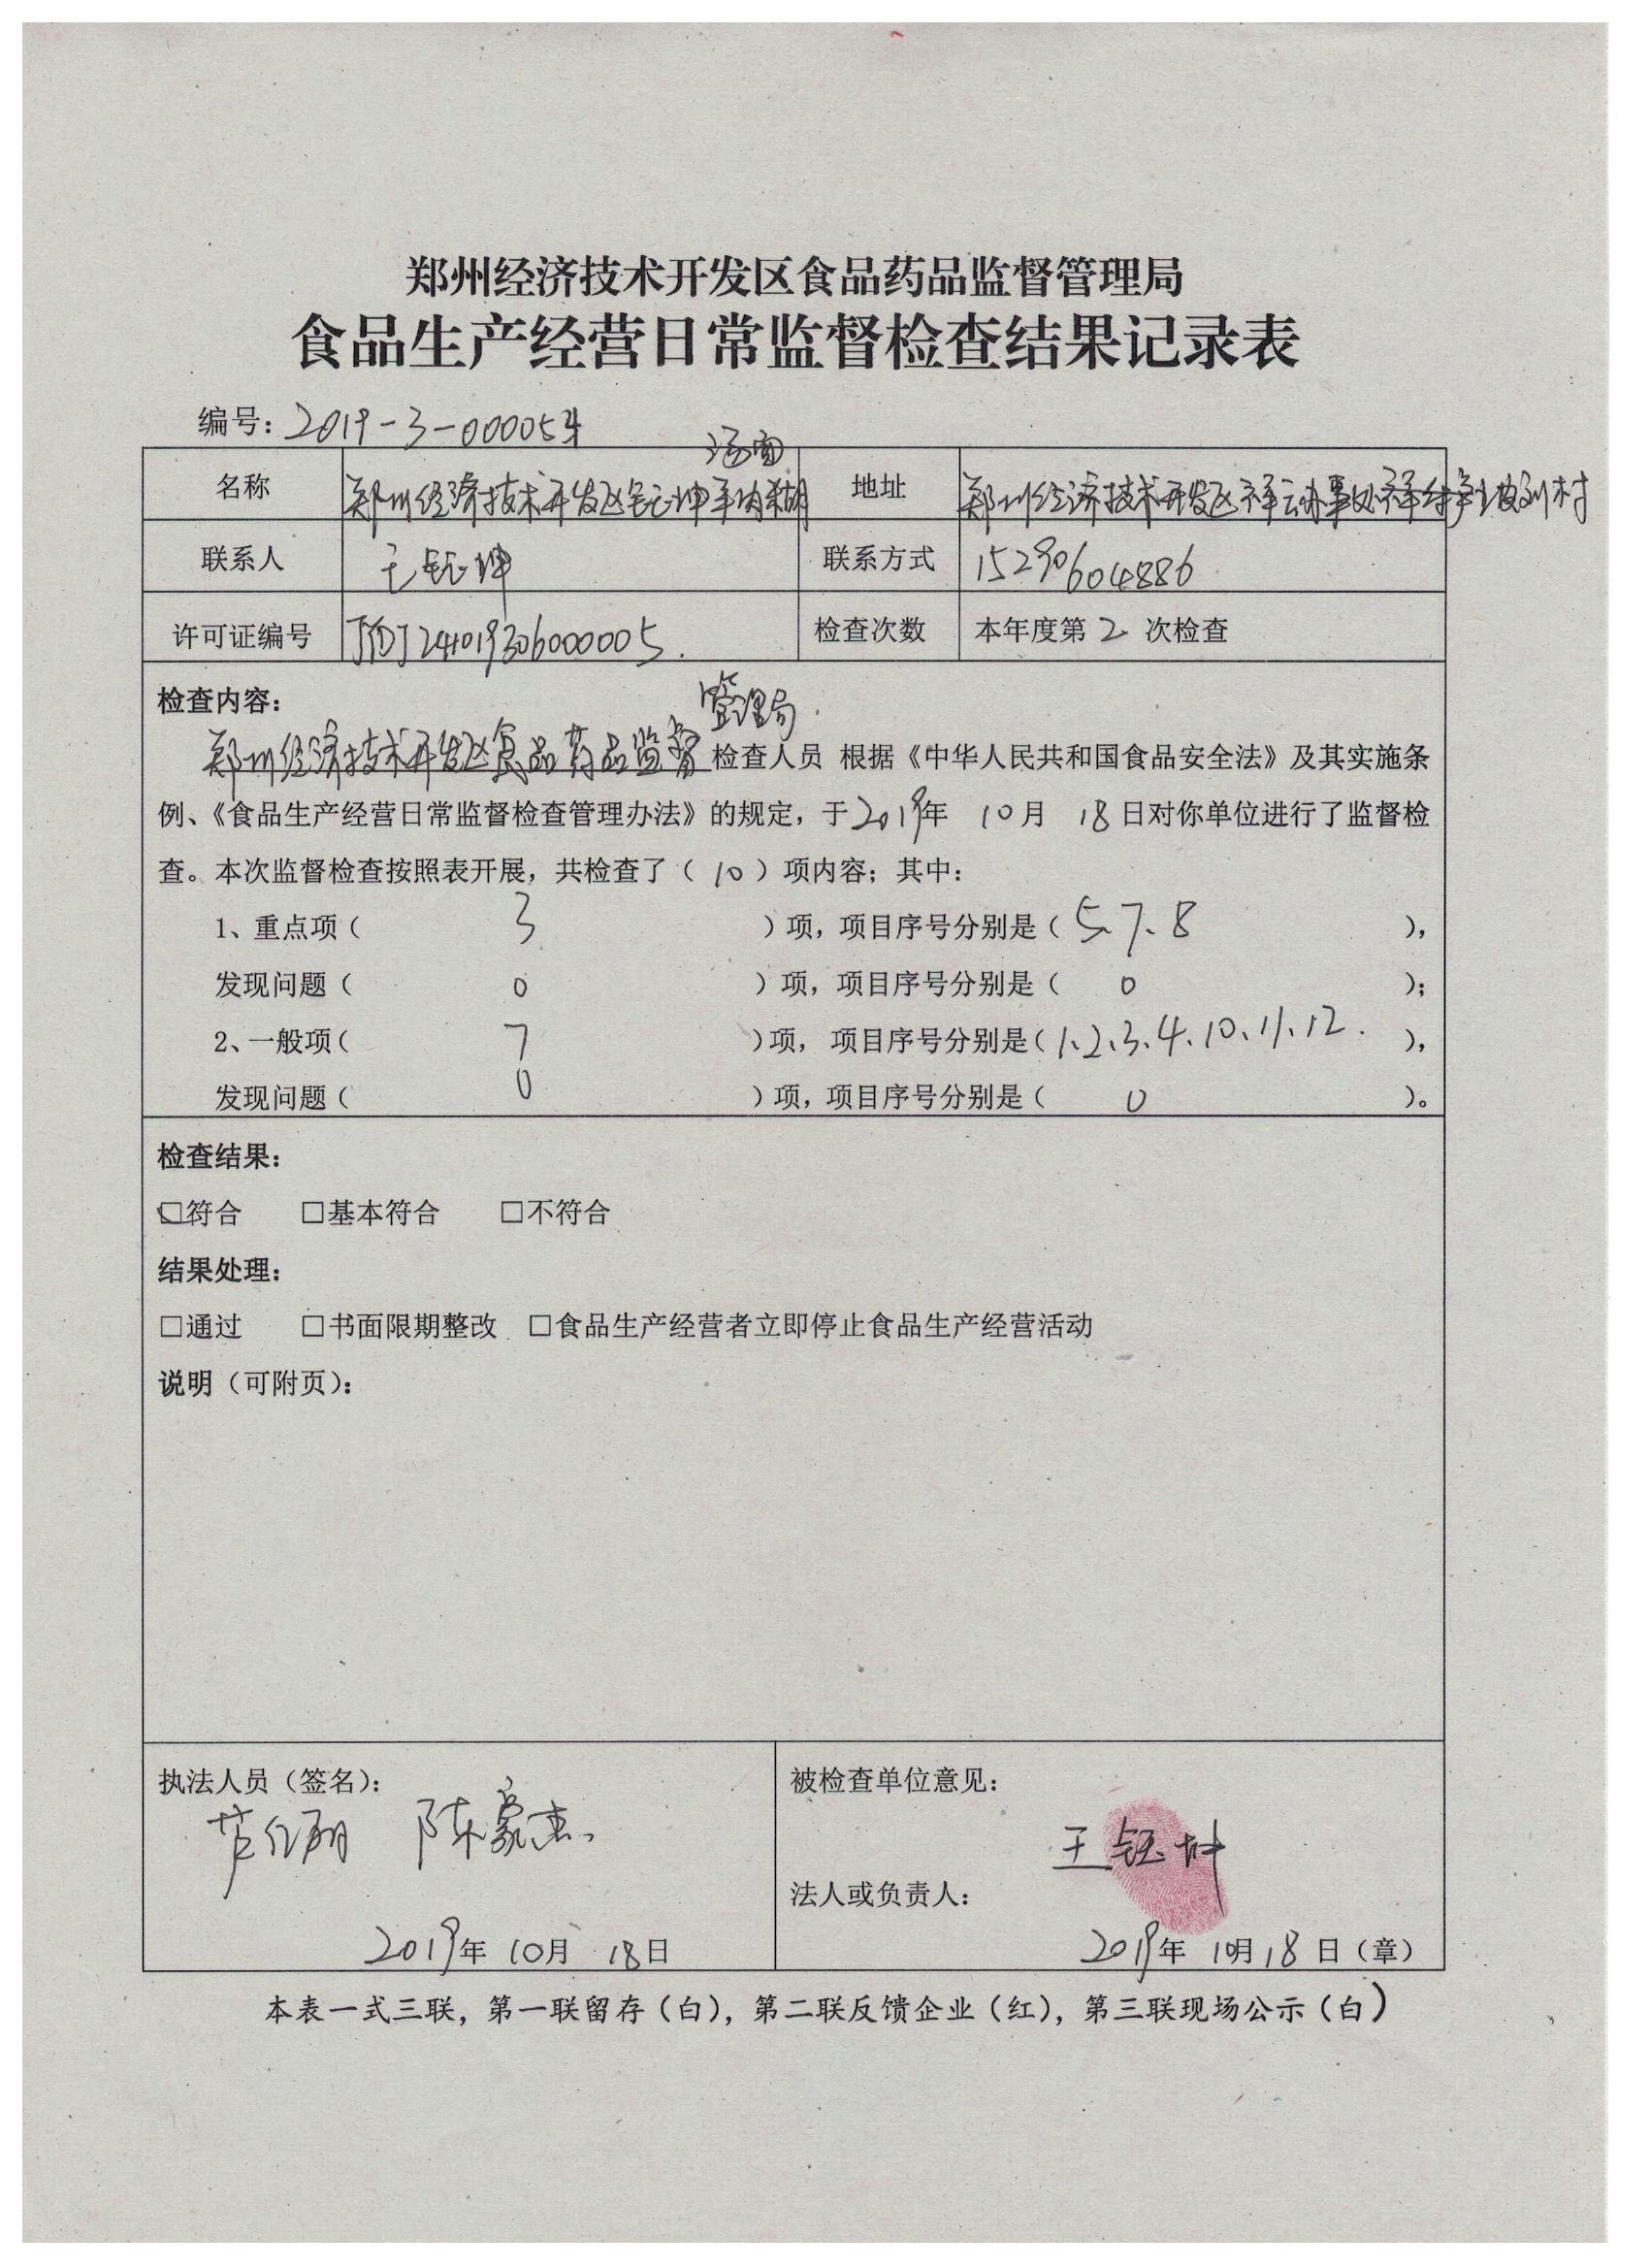 郑州经济技术开发区食品药品监督管理局
食品生产经营日常监督检查结果记录表
编号：2019-3-000054
汤面
名称 郑州经济技术开发区钰坤羊肉糊 地址 郑州经济技术开发区祥云办事处
联系人 王钰坤 联系方式 15290604886
许可证编号 241019306000005. 检查次数 本年度第2次检查
检查内容：
管理局
郑州经济技术开发区食品药品监督检查人员 根据《中华人民共和国食品安全法》及其实施条
例、《食品生产经营日常监督检查管理办法》的规定，于2019年 10月 18日对你单位进行了监督检
查。本次监督检查按照表开展，共检查了（10）项内容；其中：
1、重点项（ 3 ）项，项目序号分别是（5、7、8 ），
发现问题（ 0 ）项，项目序号分别是（ 0 ）；
2、一般项（ 7 ）项， 项目序号分别是（1、2、3、4、10、11、12. ），
发现问题（ 0 ）项，项目序号分别是（ 0 ）。
检查结果：
☑符合 □基本符合 □不符合
结果处理：
□通过 □书面限期整改 □食品生产经营者立即停止食品生产经营活动
说明（可附页）：
执法人员（签名）： 被检查单位意见：
陈豪杰 王钰坤
法人或负责人：
2019年 10月 18日 2019年 10月18日（章）
本表一式三联，第一联留存（白），第二联反馈企业（红），第三联现场公示（白）